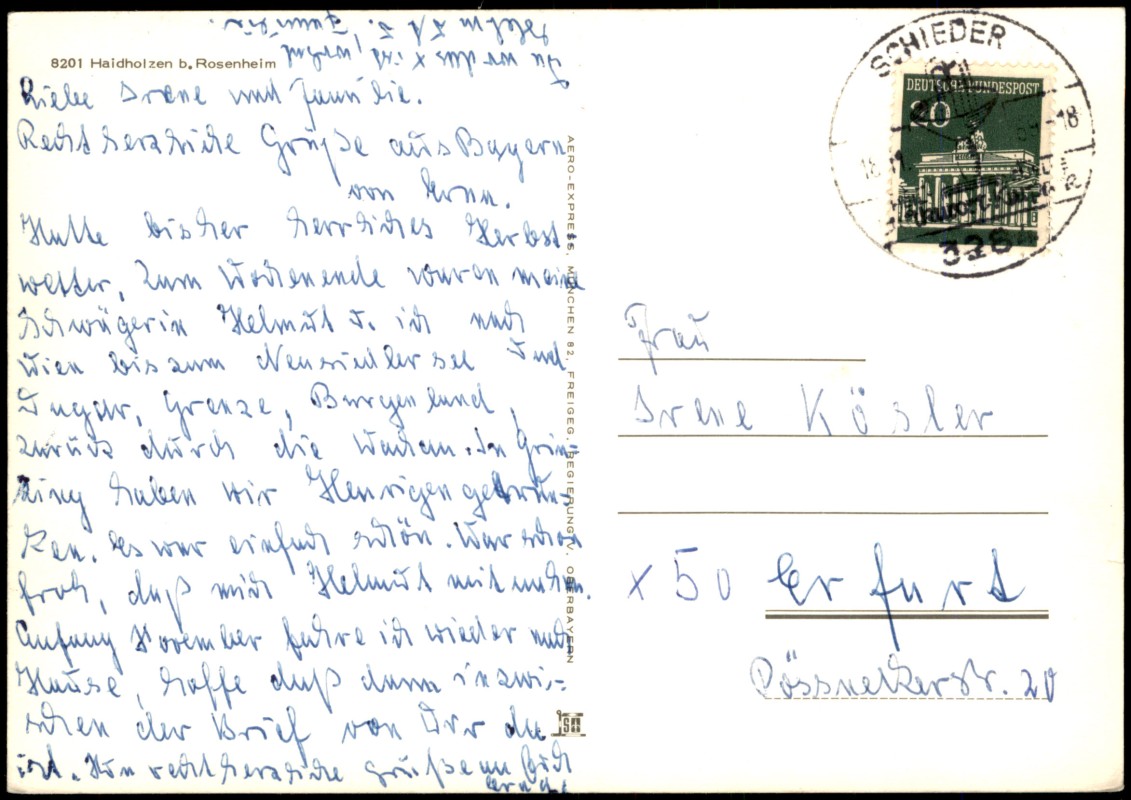 8201 Haidholzen b. Rosenheim
Liebe Irene und Familie.
Recht herzliche Grüße aus Bayern
von Erna.
Hatte bisher herrliches Herbst
wetter, zum Wochenende waren meine
Schwägerin Helmut u. ich nach
Wien bis zum Neusiedler see und
Ungar, Grenze, Burgenland,
zurück durch die Wachau. In Grin-
zing haben wir Heurigen getrun-
ken. Es war einfach schön. War schon
froh, daß mich Helmut mit nahm.
Anfang November fahre ich wieder nach
Hause, hoffe daß dann inzwi-
schen der Brief von Dir da
ist. Nun recht herzliche Grüße an Euch
AERO-EXPRESS, MÜNCHEN 82, FREIGEG. REGIERUNG V. OBERBAYERN
SCHIEDER
DEUTSCHE BUNDESPOST
20
-18
328
Frau
Irene Kösler
x 50 Erfurt
Pössneckerstr. 20